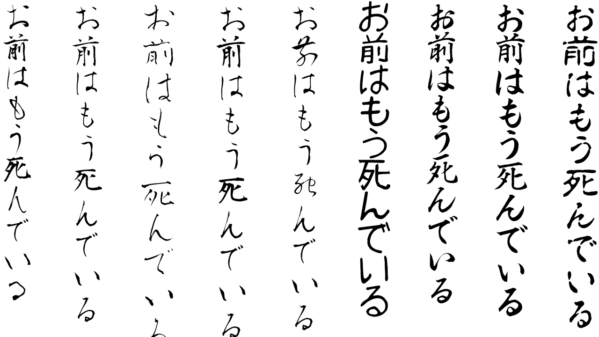 お前はもう死んでいる
お前はもう死んでいる
お前はもう死んでいる
お前はもう死んでいる
お前はもう死んでいる
お前はもう死んでいる
お前はもう死んでいる
お前はもう死んでいる
お前はもう死んでいる